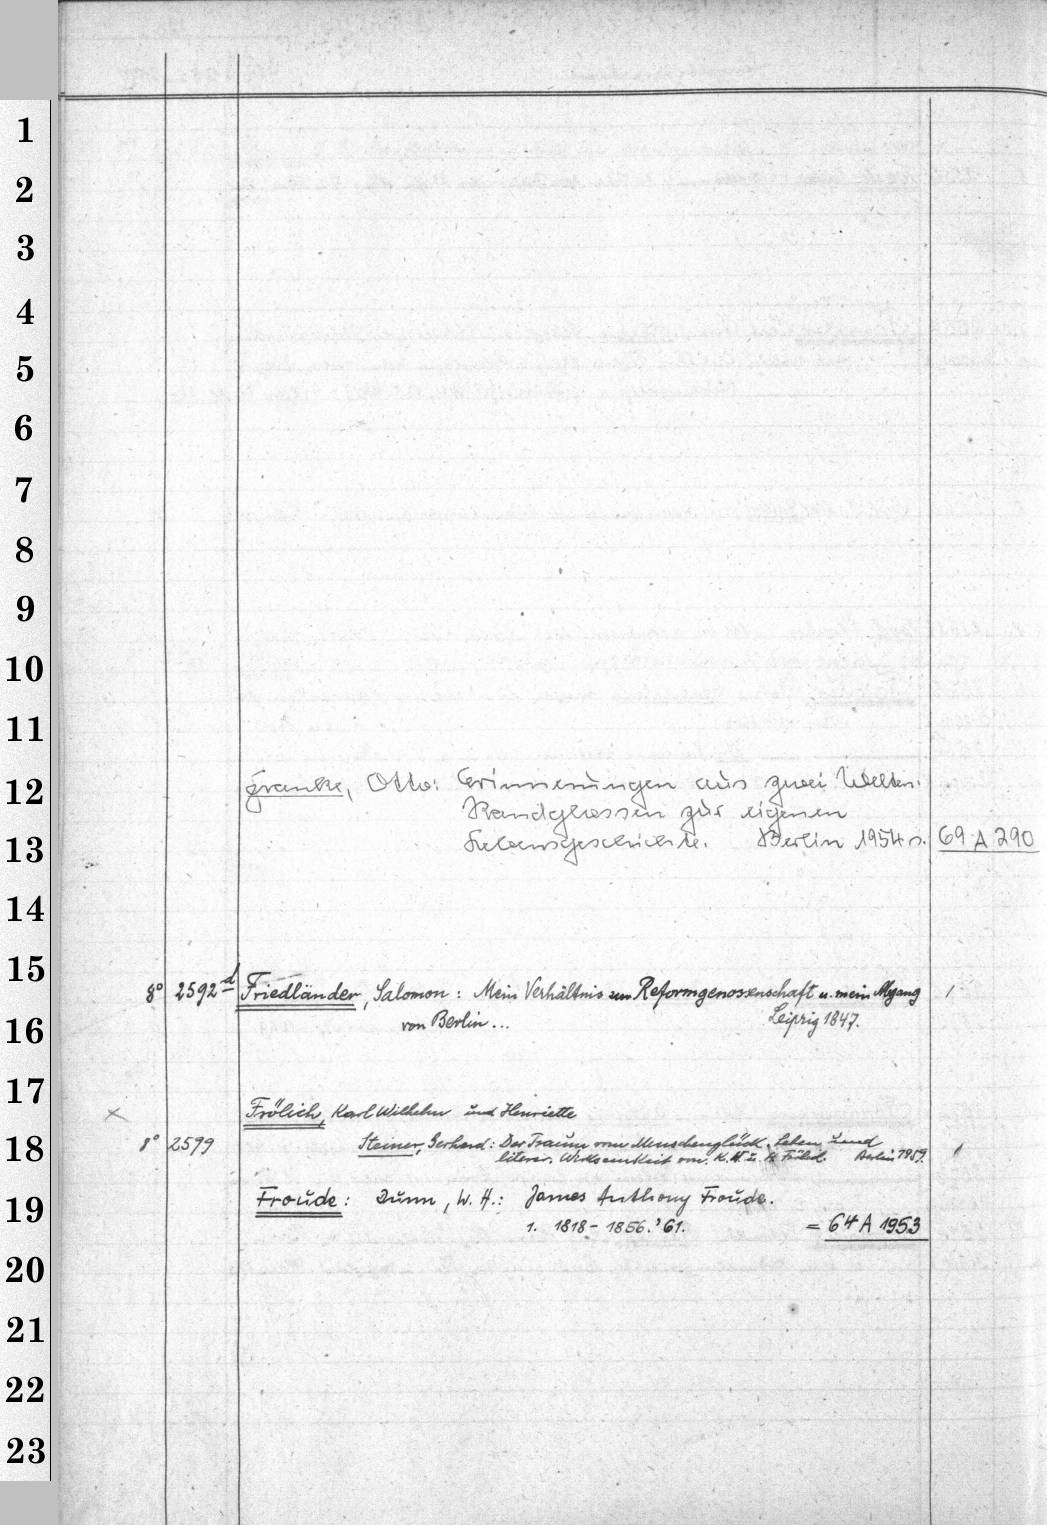 1
2
3
4
5
6
7
8
9
10
11
12
13
14
15
16
17
18
19
20
21
22
23
Franke, Otto: Erinnerungen aus zwei Welten.
Randglossen zur eigenen
Lebensgeschichte. Berlin 1954 69 A 290
8° 2592 d Friedländer, Salomon: Mein Verhältnis zur Reformgenossenschaft u. mein Abgang /
von Berlin... Leipzig 1847.
× Frölich, Karl Wilhelm und Henriette
8° 2599 Steiner, Gerhard: Der Traum vom Menschenglück. Leben und /
literar. Wirksamkeit von K. W. u. H. Frölich. Berlin 1959.
Froude: Dunn, W. H.: James Anthony Froude.
1. 1818-1856. '61. = 64 A 1953